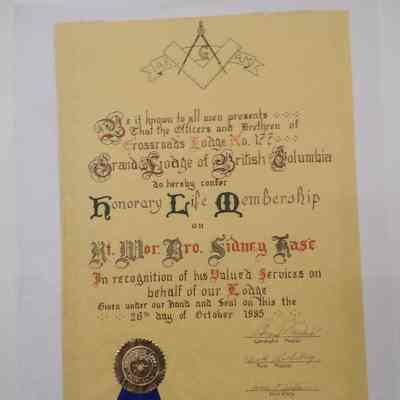 G
AF
AM
Be it known to all men presents
That the Officers and Brethren of
Crossroads Lodge No. 177
Grand Lodge of British Columbia
do hereby confer
Honorary Life Membership
on
Rt. Wor. Bro. Sidney Kase
In recognition of his Valued Services on
behalf of our Lodge
Given under our Hand and Seal on this the
26th day of October 1985